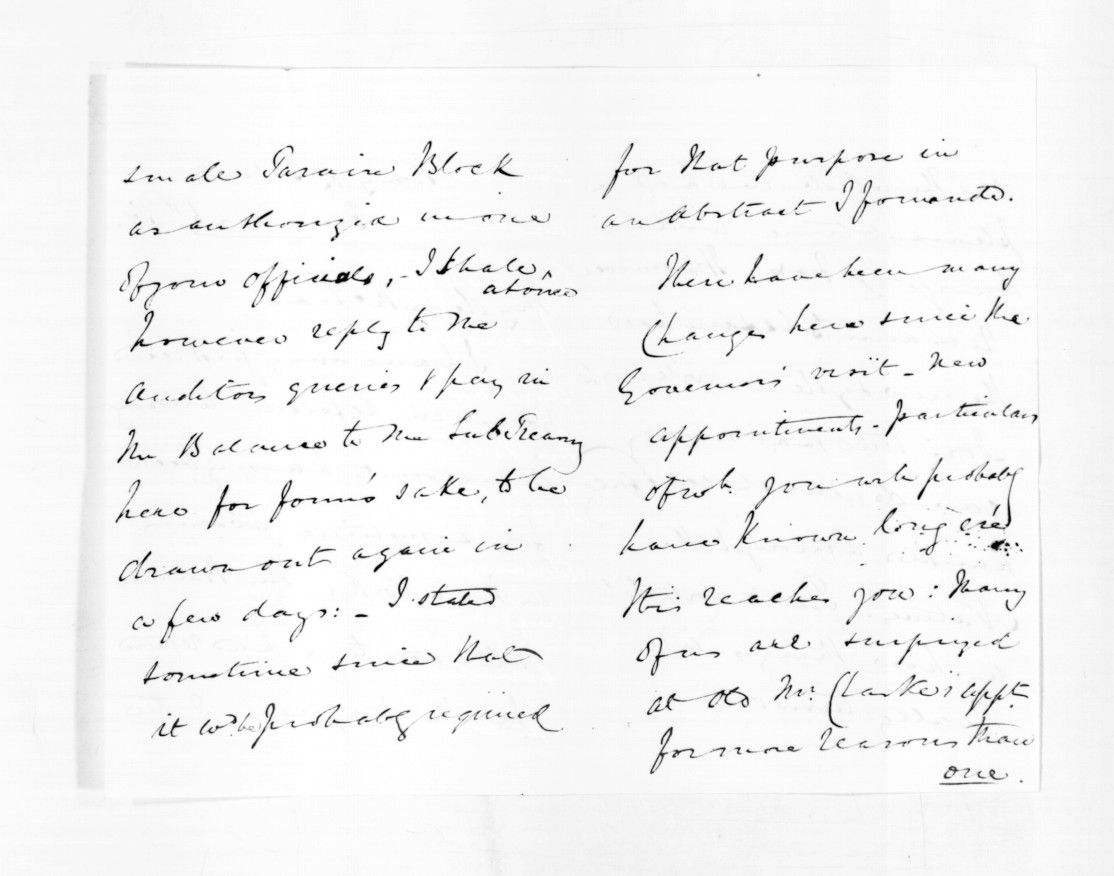 small Tarawa Block
as authorized in one
of your officials, - I shall ^
at once
however reply to the
auditors queries & pay in
the Balance to the Sub Treasury
here for form's sake, to be
drawn out again in
a few days: - I stated
sometime since that
it wd. be probably required
for that purpose in
an Abstract I forwarded.
There have been many
Changes here since the
Governors' visit - New
appointments - particulars
of wh. you will probably
have Known long ere
this reaches you: Many
of us are surprized
at old Mr. Clarke's appt.
for more reasons than
one.